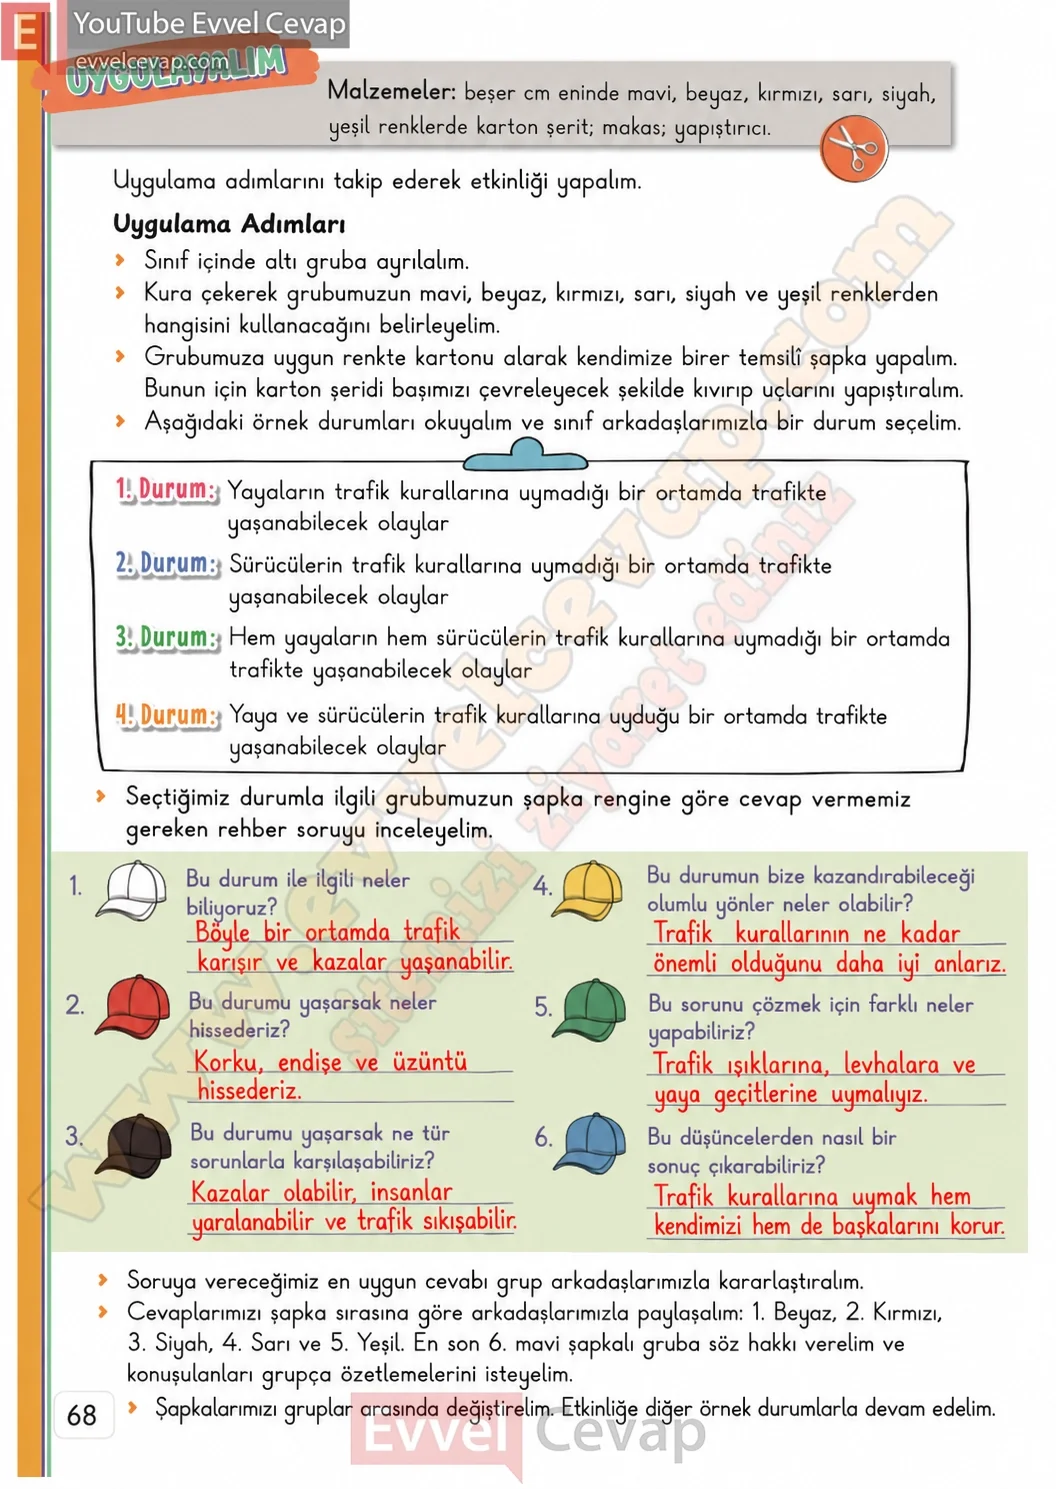 E YouTube Evvel Cevap
evvelcevap.com
UYGULAYALIM
Malzemeler: beşer cm eninde mavi, beyaz, kırmızı, sarı, siyah,
yeşil renklerde karton şerit; makas; yapıştırıcı.
Uygulama adımlarını takip ederek etkinliği yapalım.
Uygulama Adımları
Sınıf içinde altı gruba ayrılalım.
Kura çekerek grubumuzun mavi, beyaz, kırmızı, sarı, siyah ve yeşil renklerden
hangisini kullanacağını belirleyelim.
Grubumuza uygun renkte kartonu alarak kendimize birer temsilî şapka yapalım.
Bunun için karton şeridi başımızı çevreleyecek şekilde kıvırıp uçlarını yapıştıralım.
Aşağıdaki örnek durumları okuyalım ve sınıf arkadaşlarımızla bir durum seçelim.
1. Durum: Yayaların trafik kurallarına uymadığı bir ortamda trafikte
yaşanabilecek olaylar
2. Durum: Sürücülerin trafik kurallarına uymadığı bir ortamda trafikte
yaşanabilecek olaylar
3. Durum: Hem yayaların hem sürücülerin trafik kurallarına uymadığı bir ortamda
trafikte yaşanabilecek olaylar
4. Durum: Yaya ve sürücülerin trafik kurallarına uyduğu bir ortamda trafikte
yaşanabilecek olaylar
Seçtiğimiz durumla ilgili grubumuzun şapka rengine göre cevap vermemiz
gereken rehber soruyu inceleyelim.
1. Bu durum ile ilgili neler
biliyoruz?
Böyle bir ortamda trafik
karışır ve kazalar yaşanabilir.
2. Bu durumu yaşarsak neler
hissederiz?
Korku, endişe ve üzüntü
hissederiz.
3. Bu durumu yaşarsak ne tür
sorunlarla karşılaşabiliriz?
Kazalar olabilir, insanlar
yaralanabilir ve trafik sıkışabilir.
4. Bu durumun bize kazandırabileceği
olumlu yönler neler olabilir?
Trafik kurallarının ne kadar
önemli olduğunu daha iyi anlarız.
5. Bu sorunu çözmek için farklı neler
yapabiliriz?
Trafik ışıklarına, levhalara ve
yaya geçitlerine uymalıyız.
6. Bu düşüncelerden nasıl bir
sonuç çıkarabiliriz?
Trafik kurallarına uymak hem
kendimizi hem de başkalarını korur.
Soruya vereceğimiz en uygun cevabı grup arkadaşlarımızla kararlaştıralım.
Cevaplarımızı şapka sırasına göre arkadaşlarımızla paylaşalım: 1. Beyaz, 2. Kırmızı,
3. Siyah, 4. Sarı ve 5. Yeşil. En son 6. mavi şapkalı gruba söz hakkı verelim ve
konuşulanları grupça özetlemelerini isteyelim.
Şapkalarımızı gruplar arasında değiştirelim. Etkinliğe diğer örnek durumlarla devam edelim.
68
Evvel Cevap
www.evvelcevap.com
sitemizi ziyaret ediniz